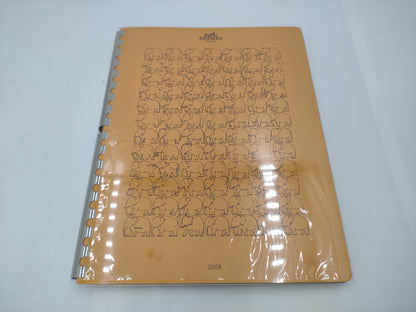 HERMES
2008